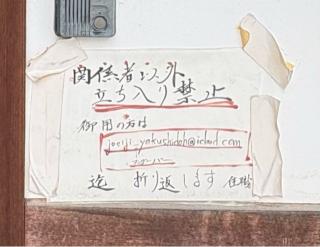 関係者以外
立ち入り禁止
御用の方は
joeiji_yakushidoh@icloud.com
アンダーバー
迄 折り返します 住職